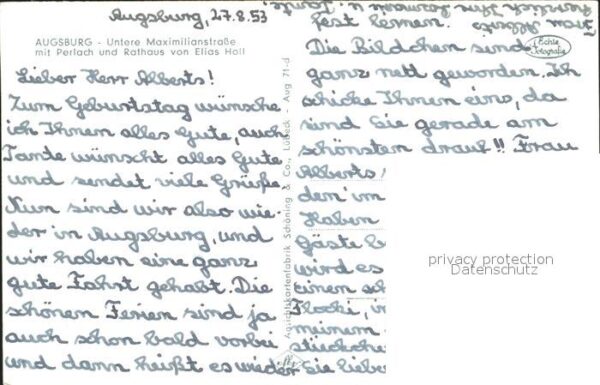 Augsburg, 27.8.53
AUGSBURG - Untere Maximilianstraße
mit Perlach und Rathaus von Elias Holl
Lieber Herr Alberts!
Zum Geburtstag wünsche
ich Ihnen alles Gute, auch
Tante wünscht alles Gute
und sendet viele Grüße.
Nun sind wir also wie-
der in Augsburg, und
wir haben eine ganz
gute Fahrt gehabt. Die
schönen Ferien sind ja
auch schon bald vorbei
und dann heißt es wieder
Ansichtskartenfabrik Schöning & Co., Lübeck - Aug 71-d
Echte
Fotografie
fest lernen.
Die Bildchen sind
ganz nett geworden. Ich
schicke Ihnen eins, da
sind Sie gerade am
schönsten drauf!! Frau
Alberts
den im
Haben
Gäste b
wird es
einem sch
Flocki, in
meinem
stückche
Sie liebe
Frau Alberts
herzlich Ihre u. Tante.
privacy protection
Datenschutz